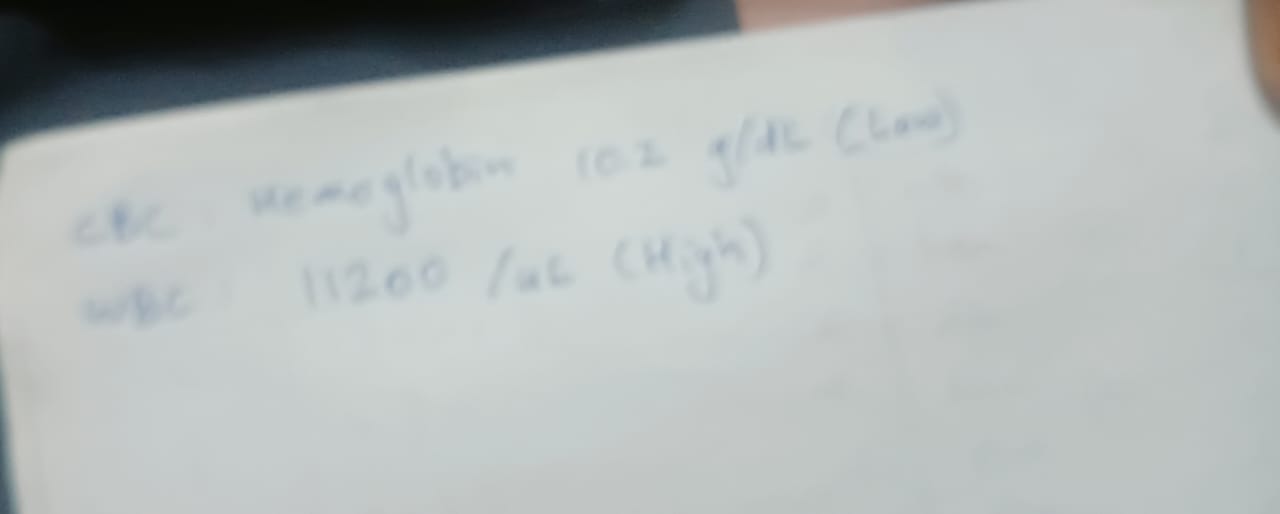 CBC: Hemoglobin 10.2 g/dL (Low)
WBC: 11200 /uL (High)